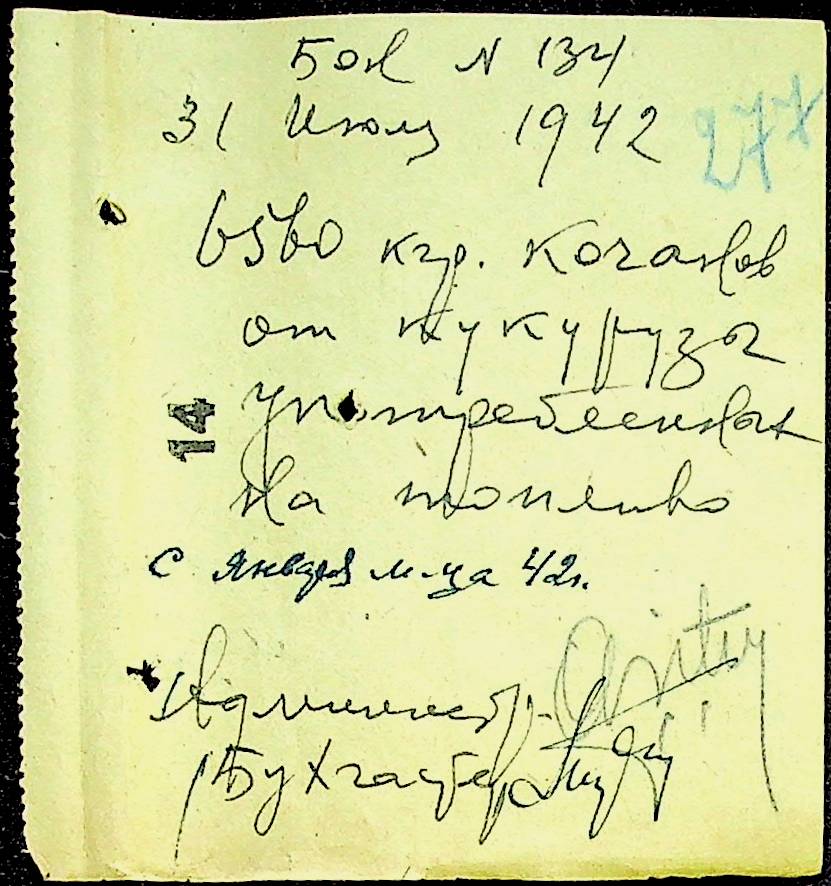 Бон N 134
31 Июля 1942
277
6560 кгр. кочанов
от кукурузы
14
употребленных
на топливо
с января м-ца 42г.
Администр.
Бухгалтер